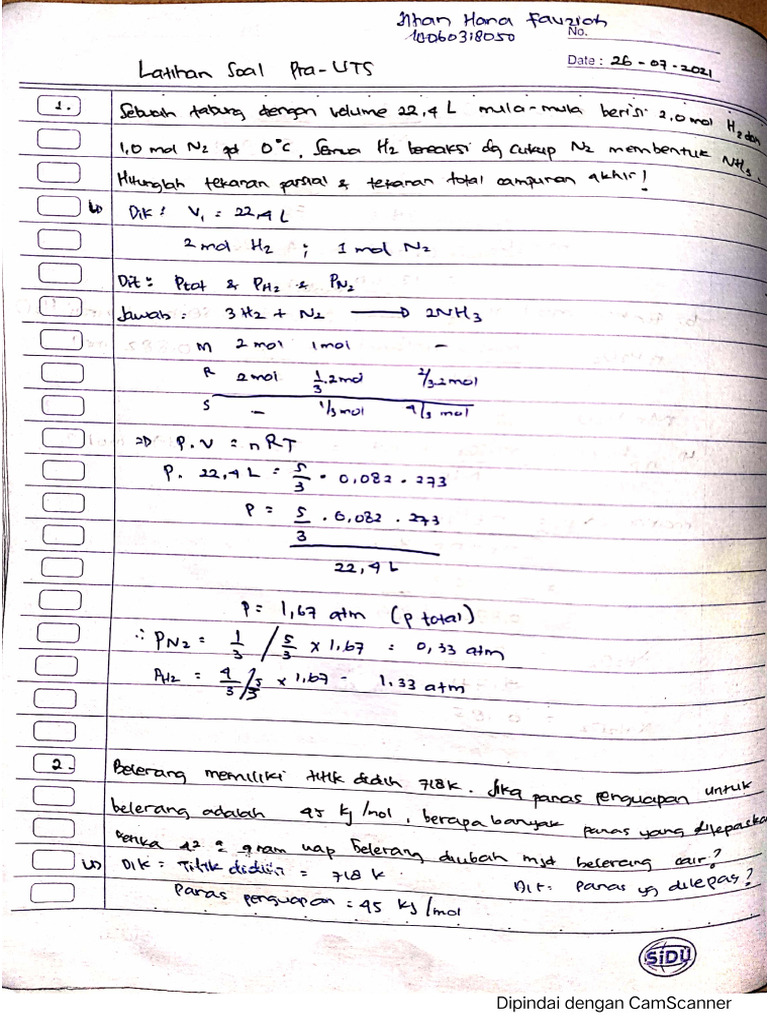 Jihan Hana Fauziah
10060318050
No.
Date : 26 - 07 - 2021
Latihan Soal Pra-UTS
1. Sebuah tabung dengan volume 22,4 L mula-mula berisi 2,0 mol H2 dan
1,0 mol N2 pd 0°C, Semua H2 bereaksi dg cukup N2 membentuk NH3.
Hitunglah tekanan parsial & tekanan total campuran akhir!
Dik : V1 = 22,4 L
2 mol H2 ; 1 mol N2
Dit : Ptot & PH2 & PN2
Jawab : 3H2 + N2 → 2NH3
M 2 mol 1 mol -
R 2 mol 1/3.2mol 2/3.2mol
S - 1/3 mol 4/3 mol
=> P.V = nRT
P. 22,4 L = 5/3 . 0,082 . 273
P = 5/3 . 0,082 . 273
22,4 L
P = 1,67 atm (P total)
∴ PN2 = 1/3 / 5/3 x 1,67 = 0,33 atm
PH2 = 4/3 / 5/3 x 1,67 - 1.33 atm
2. Belerang memiliki titik didih 718 K. Jika panas penguapan untuk
belerang adalah 45 kJ/mol, berapa banyak panas yang dilepaskan
ketika 42 gram uap belerang diubah mjd belerang cair?
Dik = Titik didih = 718 K Dit = Panas yg dilepas?
Panas penguapan = 45 kJ/mol
SiDU
Dipindai dengan CamScanner